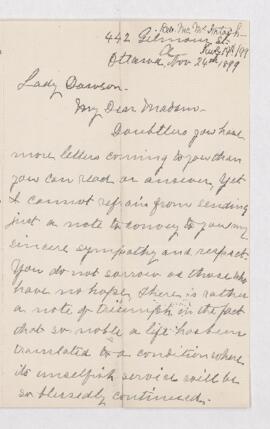 442 Gilmour St.
Ottawa, Nov 24th, 1899
Lady Dawson.
My Dear Madam.
Doubtless you have
more letters coming to you than
you can read or answer, yet
I cannot refrain from sending
just a note to convey to you my
sincere sympathy and respect.
You do not sorrow as those who
have no hope, there is rather
a note of triumph in the fact
that so noble a life has been
translated to a condition where
its unselfish service will be
so blessedly continued.